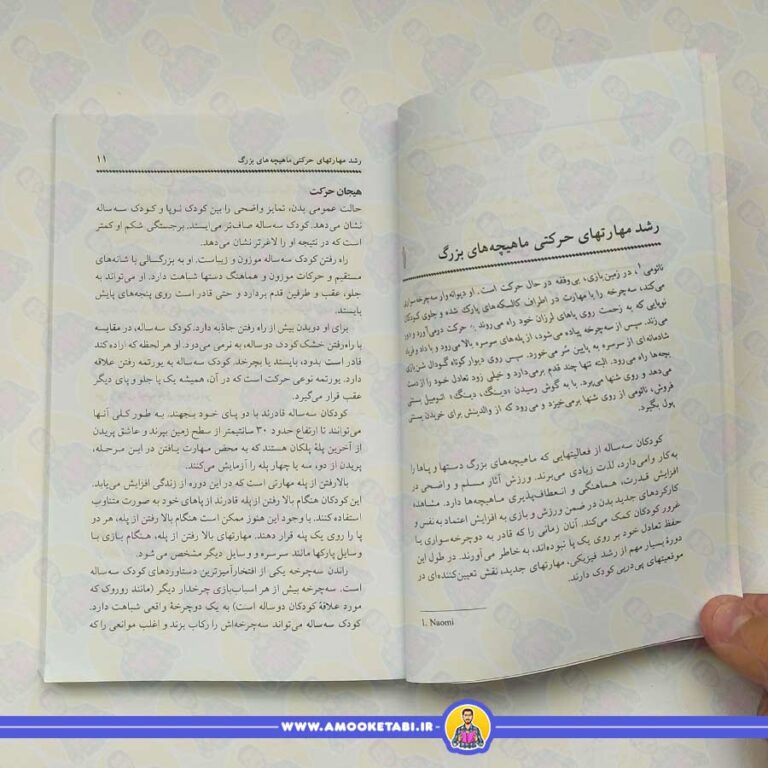 رشد مهارتهای حرکتی ماهیچه‌های بزرگ
نائومی۱، در زمین بازی، بی‌وقفه در حال حرکت است. او دیوانه‌وار سه‌چرخه‌سواری
می‌کند، سه‌چرخه را با مهارت در اطراف کالسکه‌های پارک شده و جلوی کودکان
نوپایی که به زحمت روی پاهای لرزان خود راه می‌روند به حرکت درمی‌آورد و دور
می‌زند. سپس از سه‌چرخه پیاده می‌شود، از پله‌های سرسره بالا می‌رود و با داد و فریاد
شادمانه‌ای از سرسره به پایین سُر می‌خورد. سپس روی دیوار کوتاه گودال شن‌بازی
بچه‌ها راه می‌رود. البته تنها چند قدم برمی‌دارد و خیلی زود تعادل خود را از دست
می‌دهد و روی شنها می‌پرد. با به گوش رسیدن «دینگ، دینگ» اتومبیل بستنی
فروش، نائومی از روی شنها برمی‌خیزد و می‌رود که از والدینش برای خریدن بستنی
پول بگیرد.
کودکان سه‌ساله از فعالیتهایی که ماهیچه‌های بزرگ دستها و پاها را
به‌کار وامی‌دارد، لذت زیادی می‌برند. ورزش آثار مسلم و واضحی در
افزایش قدرت، هماهنگی و انعطاف‌پذیری ماهیچه‌ها دارد. مشاهده
کارکردهای جدید بدن در ضمن ورزش و بازی به افزایش اعتماد به نفس و
غرور کودکان کمک می‌کند. آنان زمانی را که قادر به دوچرخه‌سواری یا
حفظ تعادل خود بر روی یک پا نبوده‌اند، به خاطر می‌آورند. در طول این
دورهٔ بسیار مهم از رشد فیزیکی، مهارتهای جدید، نقش تعیین‌کننده‌ای در
موفقیتهای پی‌درپی کودک دارند.
1. Naomi
رشد مهارتهای حرکتی ماهیچه‌های بزرگ ۱۱
هیجان حرکت
حالت عمومی بدن، تمایز واضحی را بین کودک نوپا و کودک سه‌ساله
نشان می‌دهد. کودک سه‌ساله صاف‌تر می‌ایستد. برجستگی شکم او کمتر
است که در نتیجه او را لاغرتر نشان می‌دهد.
راه رفتن کودک سه‌ساله موزون و زیباست. او به بزرگسالی با شانه‌های
مستقیم و حرکات موزون و هماهنگ دستها شباهت دارد. او می‌تواند به
جلو، عقب و طرفین قدم بردارد و حتی قادر است روی پنجه‌های پایش
بایستد.
برای او دویدن بیش از راه رفتن جاذبه دارد. کودک سه‌ساله، در مقایسه
با راه‌رفتن خشک کودک دوساله، به نرمی می‌دود. او هر لحظه که اراده کند
قادر است بدود، بایستد یا بچرخد. کودک سه‌ساله به یورتمه رفتن علاقه
دارد. یورتمه نوعی حرکت است که در آن، همیشه یک پا جلو و پای دیگر
عقب قرار می‌گیرد.
کودکان سه‌ساله قادرند با دو پای خود بجهند. به طور کلی آنها
می‌توانند تا ارتفاع حدود ۳۰ سانتیمتر از سطح زمین بپرند و عاشق پریدن
از آخرین پلهٔ پلکان هستند که به محض مهارت یافتن در این مرحله،
پریدن از دو، سه یا چهار پله را آزمایش می‌کنند.
بالارفتن از پله مهارتی است که در این دوره از زندگی افزایش می‌یابد.
این کودکان هنگام بالا رفتن از پله قادرند از پاهای خود به صورت متناوب
استفاده کنند. با وجود این هنوز ممکن است هنگام بالا رفتن از پله، هر دو
پا را روی یک پله قرار دهند. مهارتهای بالا رفتن از پله، هنگام بازی با
وسایل پارکها مانند سرسره و وسایل دیگر مشخص می شود.
راندن سه‌چرخه یکی از افتخارآمیزترین دستاوردهای کودک سه‌ساله
است. سه‌چرخه بیش از هر اسباب‌بازی چرخدار دیگر (مانند روروک که
مورد علاقهٔ کودکان دوساله است) به یک دوچرخهٔ واقعی شباهت دارد.
کودک سه‌ساله می‌تواند سه‌چرخه‌اش را رکاب بزند و اغلب موانعی را که
WWW.AMOOKETABI.IR